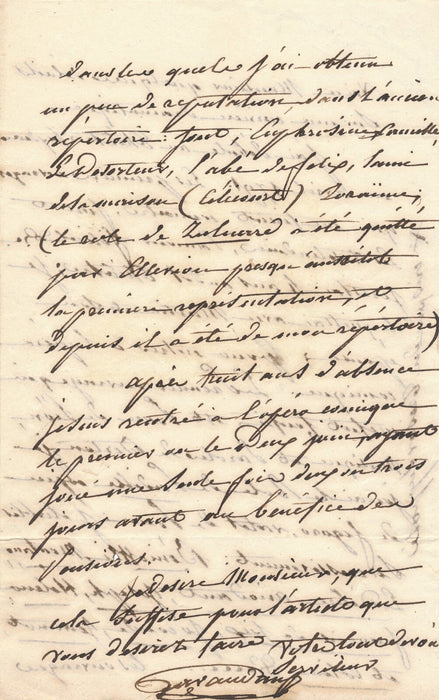 dans les quels j'ai obtenu
un peu de reputation, dans l'ancien
répertoire sont, Euphrosine, Camille,
Le Deserteur, l'abé de
de la maison (Célicourt)
(le role de Zulnare a été quitté
par Elleviou presqu aussitot
la premiere représentation, et
depuis il a été de mon répertoire)
après huit ans d'absence
je suis rentré a l'opéra comique
le premier ou le deux juin, ayant
joué une seule fois deux ou trois
jours avant au bénéfice des
Je desire Monsieur, que
cela suffise pour l'article que
vous desirez faire
votre tout dévoué
serviteur
Gavaudan